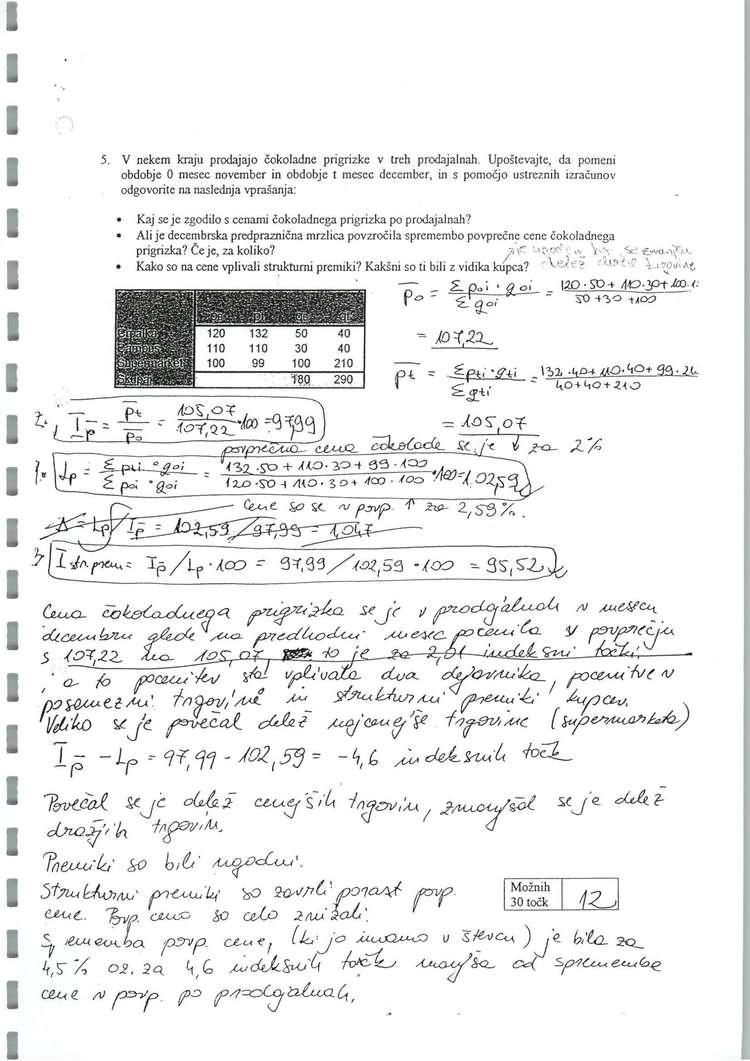 5. V nekem kraju prodajajo čokoladne prigrizke v treh prodajalnah. Upoštevajte, da pomeni
obdobje 0 mesec november in obdobje t mesec december, in s pomočjo ustreznih izračunov
odgovorite na naslednja vprašanja:
• Kaj se je zgodilo s cenami čokoladnega prigrizka po prodajalnah?
• Ali je decembrska predpraznična mrzlica povzročila spremembo povprečne cene čokoladnega
prigrizka? Če je, za koliko?
• Kako so na cene vplivali strukturni premiki? Kakšni so ti bili z vidika kupca?
delež dražje trgovine
p̄0 = Σ p0i · q0i / Σ q0i = 120·50 + 110·30 + 100·1 / 50 + 30 + 100
= 107,22
120 132 50 40
110 110 30 40
Supermarket 100 99 100 210
Skupaj 180 290
p̄t = Σ pti · qti / Σ qti = 132·40 + 110·40 + 99·21 / 40 + 40 + 210
= 105,07
2. I p̄ = p̄t / p̄0 = 105,07 / 107,22 · 100 = 97,99
povprečna cena čokolade se je ↓ za 2%
1. Lp = Σ pti · q0i / Σ p0i · q0i = 132·50 + 110·30 + 99·100 / 120·50 + 110·30 + 100·100 · 100 = 102,59
Cene so se v povp. ↑ za 2,59%.
= Lp / I p̄ = 102,59 / 97,99 = 1,047
3. I str. prem = I p̄ / Lp · 100 = 97,99 / 102,59 · 100 = 95,52
Cena čokoladnega prigrizka se je v prodajalnah v mesecu
decembru glede na predhodni mesec pocenila v povprečju
s 107,22 na 105,07, to je za 2,01 indeksni točki,
a to pocenitev sta vplivala dva dejavnika, pocenitve v
posamezni trgovini in strukturni premiki kupcev.
Veliko se je povečal delež najcenejše trgovine (supermarketa)
I p̄ - Lp = 97,99 - 102,59 = -4,6 indeksnih točk
Povečal se je delež cenejših trgovin, zmanjšal se je delež
dražjih trgovin.
Premiki so bili ugodni.
Strukturni premiki so zavrli porast povp.
cene. Povp. ceno so celo znižali.
Sprememba povp. cene, (ki jo imamo v števcu) je bila za
4,5% oz. za 4,6 indeksnih točk manjša od spremembe
cene v povp. po prodajalnah.
Možnih
30 točk
12